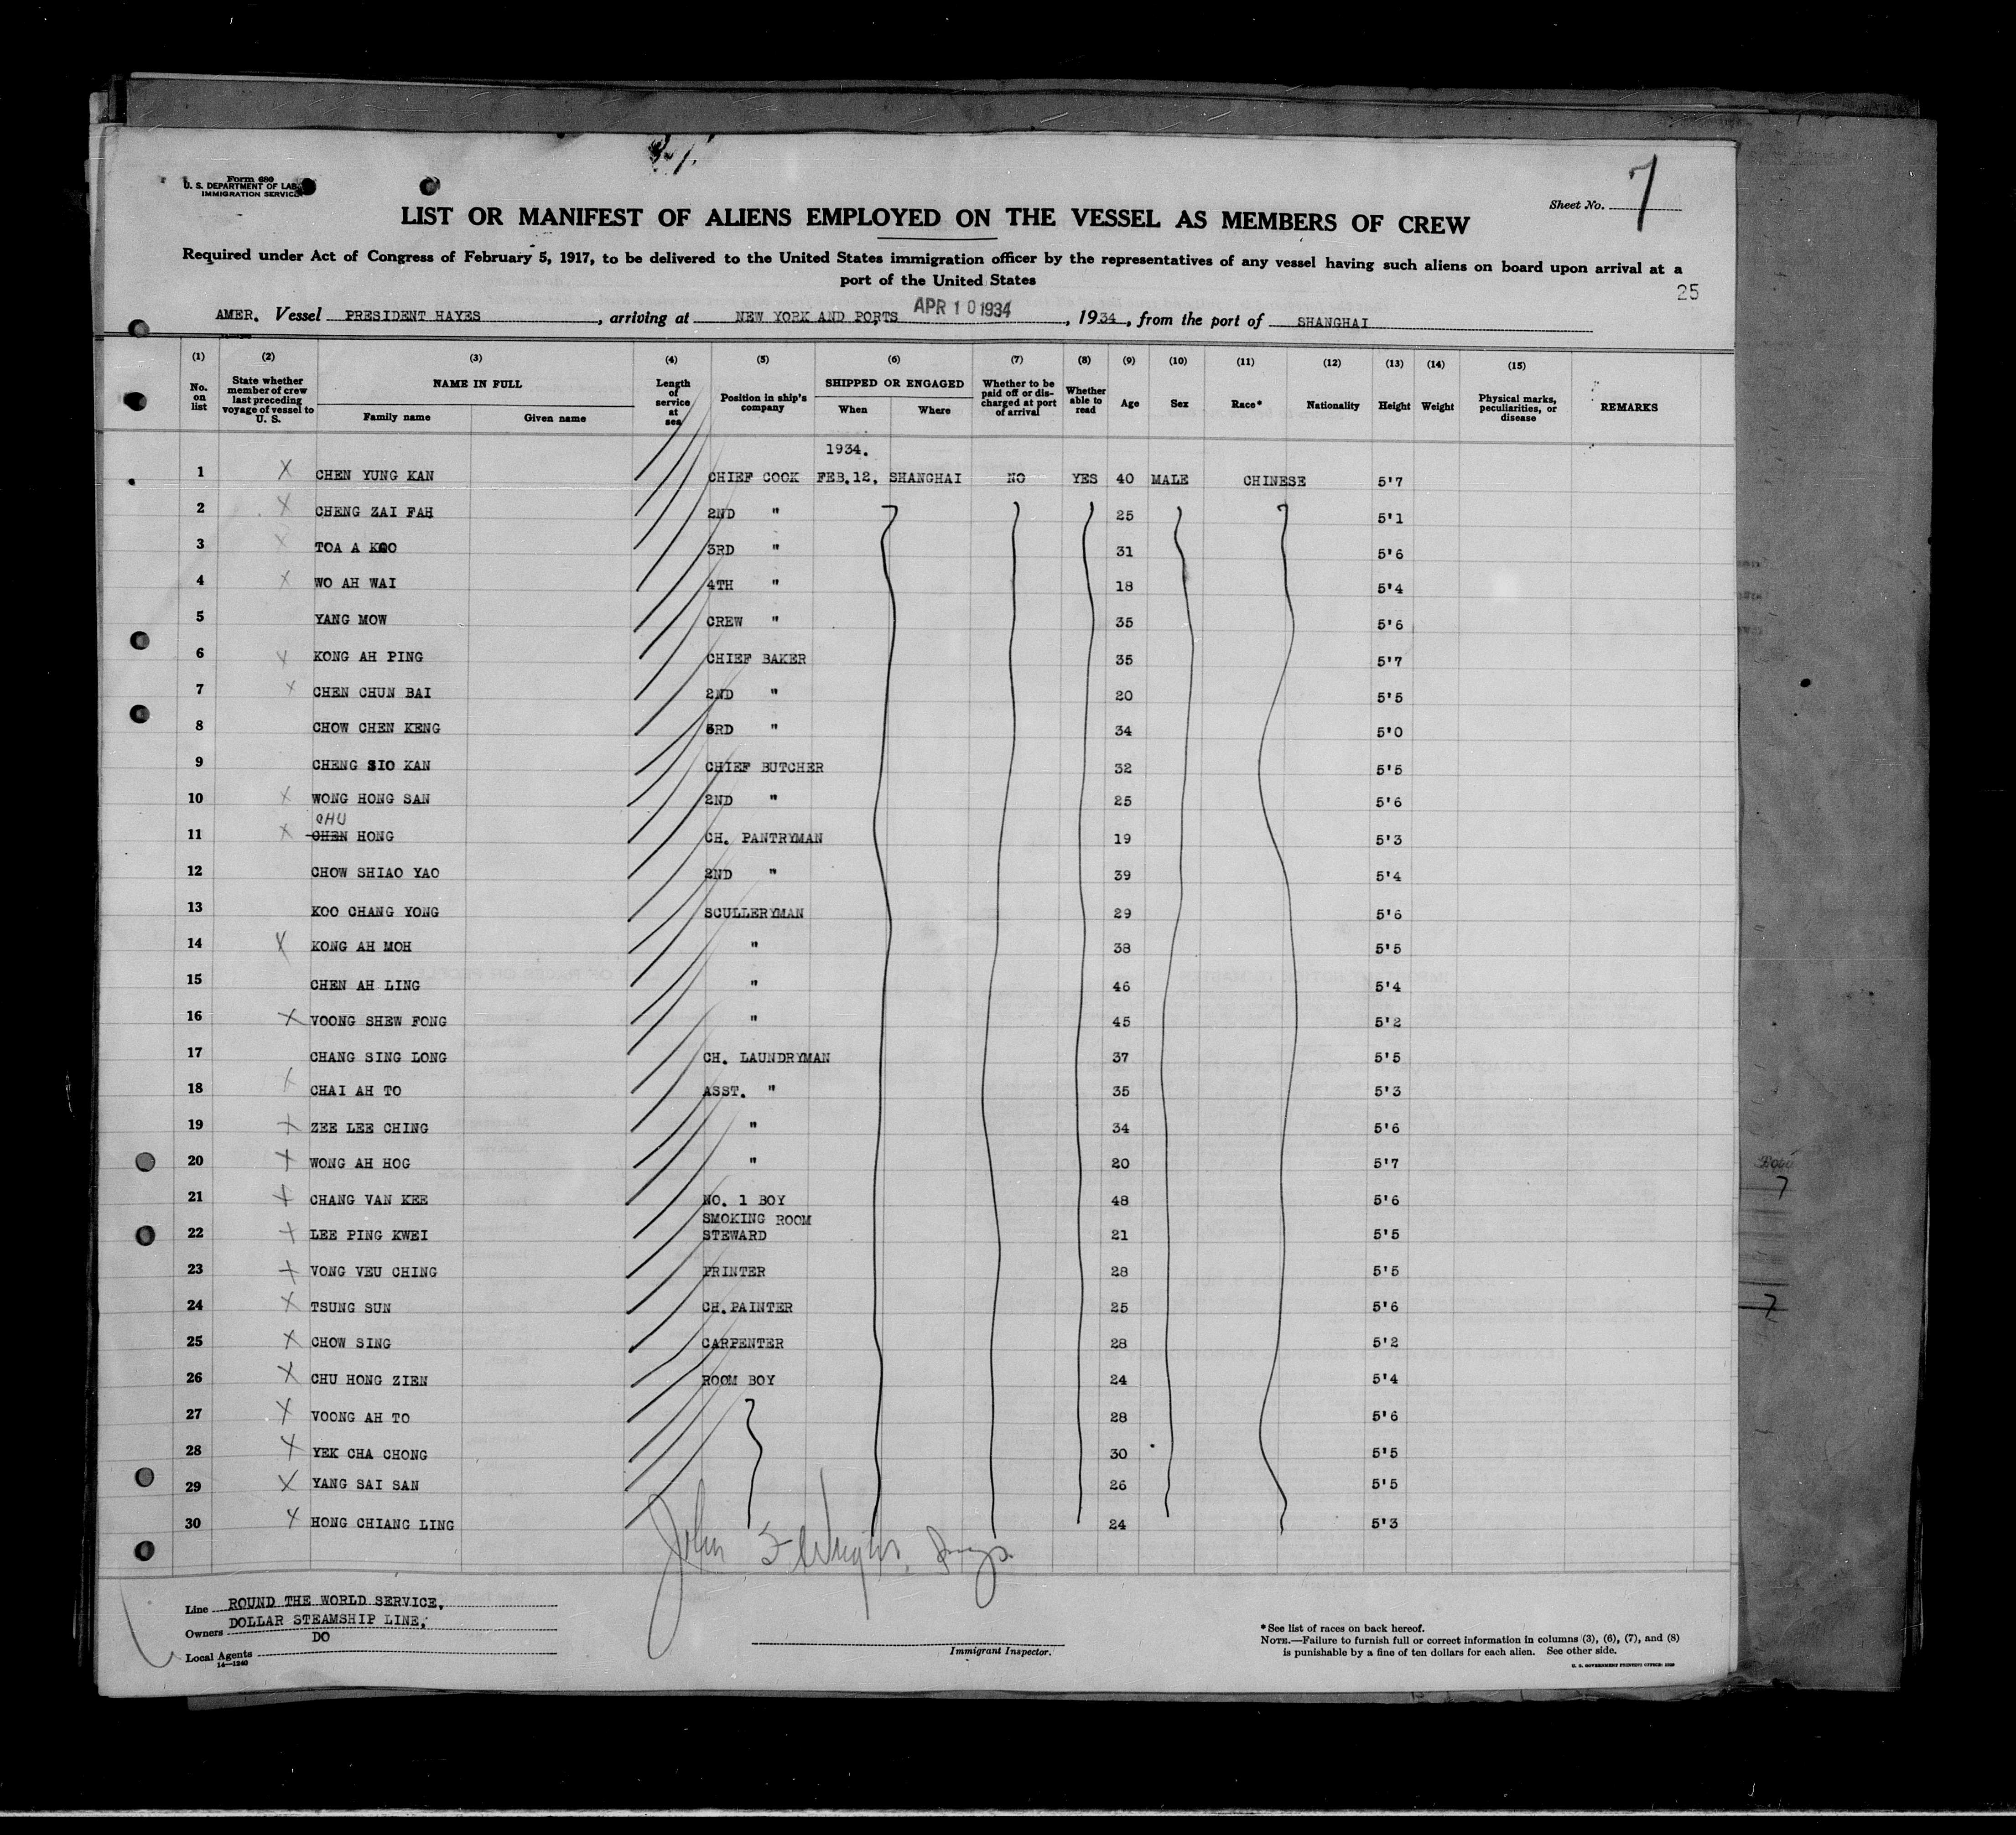 Form 680
U. S. DEPARTMENT OF LAB
IMMIGRATION SERVICE
Sheet No. 7
LIST OR MANIFEST OF ALIENS EMPLOYED ON THE VESSEL AS MEMBERS OF CREW
Required under Act of Congress of February 5, 1917, to be delivered to the United States immigration officer by the representatives of any vessel having such aliens on board upon arrival at a
port of the United States
25
AMER. Vessel PRESIDENT HAYES, arriving at NEW YORK AND PORTS APR 10 1934, 1934, from the port of SHANGHAI
(1) (2) (3) (4) (5) (6) (7) (8) (9) (10) (11) (12) (13) (14) (15)
No. on list State whether member of crew last preceding voyage of vessel to U. S. NAME IN FULL Family name Given name Length of service at sea Position in ship's company SHIPPED OR ENGAGED When Where Whether to be paid off or discharged at port of arrival Whether able to read Age Sex Race* Nationality Height Weight Physical marks, peculiarities, or disease REMARKS
1934.
1 X CHEN YUNG KAN CHIEF COOK FEB.12, SHANGHAI NO YES 40 MALE CHINESE 5'7
2 X CHENG ZAI FAH 2ND " 25 5'1
3 X TOA A KOO 3RD " 31 5'6
4 X WO AH WAI 4TH " 18 5'4
5 YANG MOW CREW " 35 5'6
6 X KONG AH PING CHIEF BAKER 35 5'7
7 X CHEN CHUN BAI 2ND " 20 5'5
8 CHOW CHEN KENG 3RD " 34 5'0
9 CHENG SIO KAN CHIEF BUTCHER 32 5'5
10 X WONG HONG SAN 2ND " 25 5'6
CHU
11 X CHEN HONG CH. PANTRYMAN 19 5'3
12 CHOW SHIAO YAO 2ND " 39 5'4
13 KOO CHANG YONG SCULLERYMAN 29 5'6
14 X KONG AH MOH " 38 5'5
15 CHEN AH LING " 46 5'4
16 X VOONG SHEW FONG " 45 5'2
17 CHANG SING LONG CH. LAUNDRYMAN 37 5'5
18 X CHAI AH TO ASST. " 35 5'3
19 X ZEE LEE CHING " 34 5'6
20 X WONG AH HOG " 20 5'7
21 X CHANG VAN KEE NO. 1 BOY 48 5'6
SMOKING ROOM
22 X LEE PING KWEI STEWARD 21 5'5
23 X VONG VEU CHING PRINTER 28 5'5
24 X TSUNG SUN CH.PAINTER 25 5'6
25 X CHOW SING CARPENTER 28 5'2
26 X CHU HONG ZIEN ROOM BOY 24 5'4
27 X VOONG AH TO 28 5'6
28 X YEK CHA CHONG 30 5'5
29 X YANG SAI SAN 26 5'5
30 X HONG CHIANG LING 24 5'3
John
Line ROUND THE WORLD SERVICE.
Owners DOLLAR STEAMSHIP LINE.
DO
Local Agents
14—1240
Immigrant Inspector.
* See list of races on back hereof.
NOTE.—Failure to furnish full or correct information in columns (3), (6), (7), and (8)
is punishable by a fine of ten dollars for each alien. See other side.
U. S. GOVERNMENT PRINTING OFFICE: